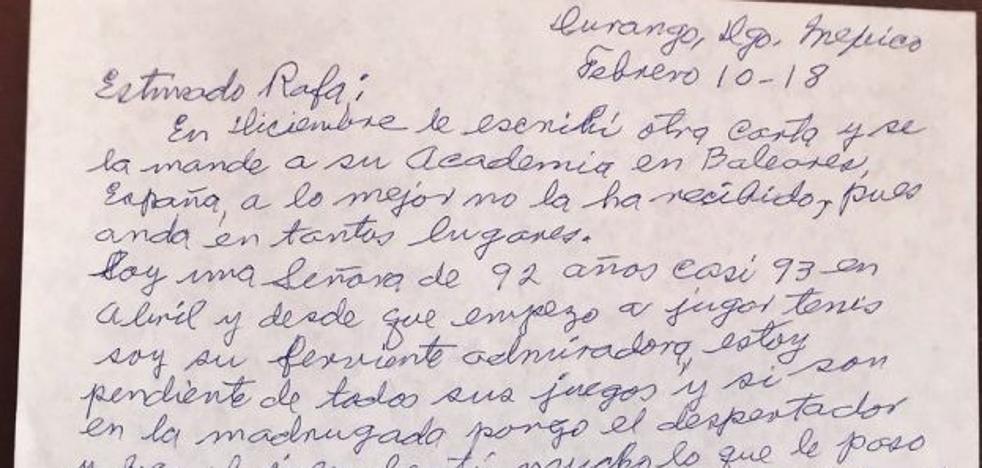 Durango, Dgo. Mexico
Febrero 10-18
Estimado Rafa;
En Diciembre le escribí otra carta y se
la mande a su Academia en Baleares,
España, a lo mejor no la ha recibido, pues
anda en tantos lugares.
Soy una Señora de 92 años casi 93 en
Abril y desde que empezo a jugar tenis
soy su ferviente admiradora, estoy
pendiente de todos sus juegos y si son
en la madrugada pongo el despertador
mucho lo que le paso